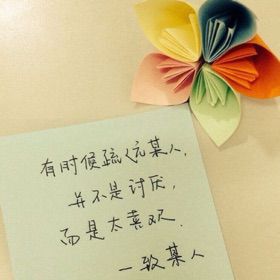 有时候疏远某人，
并不是讨厌，
而是太喜欢.
—致某人